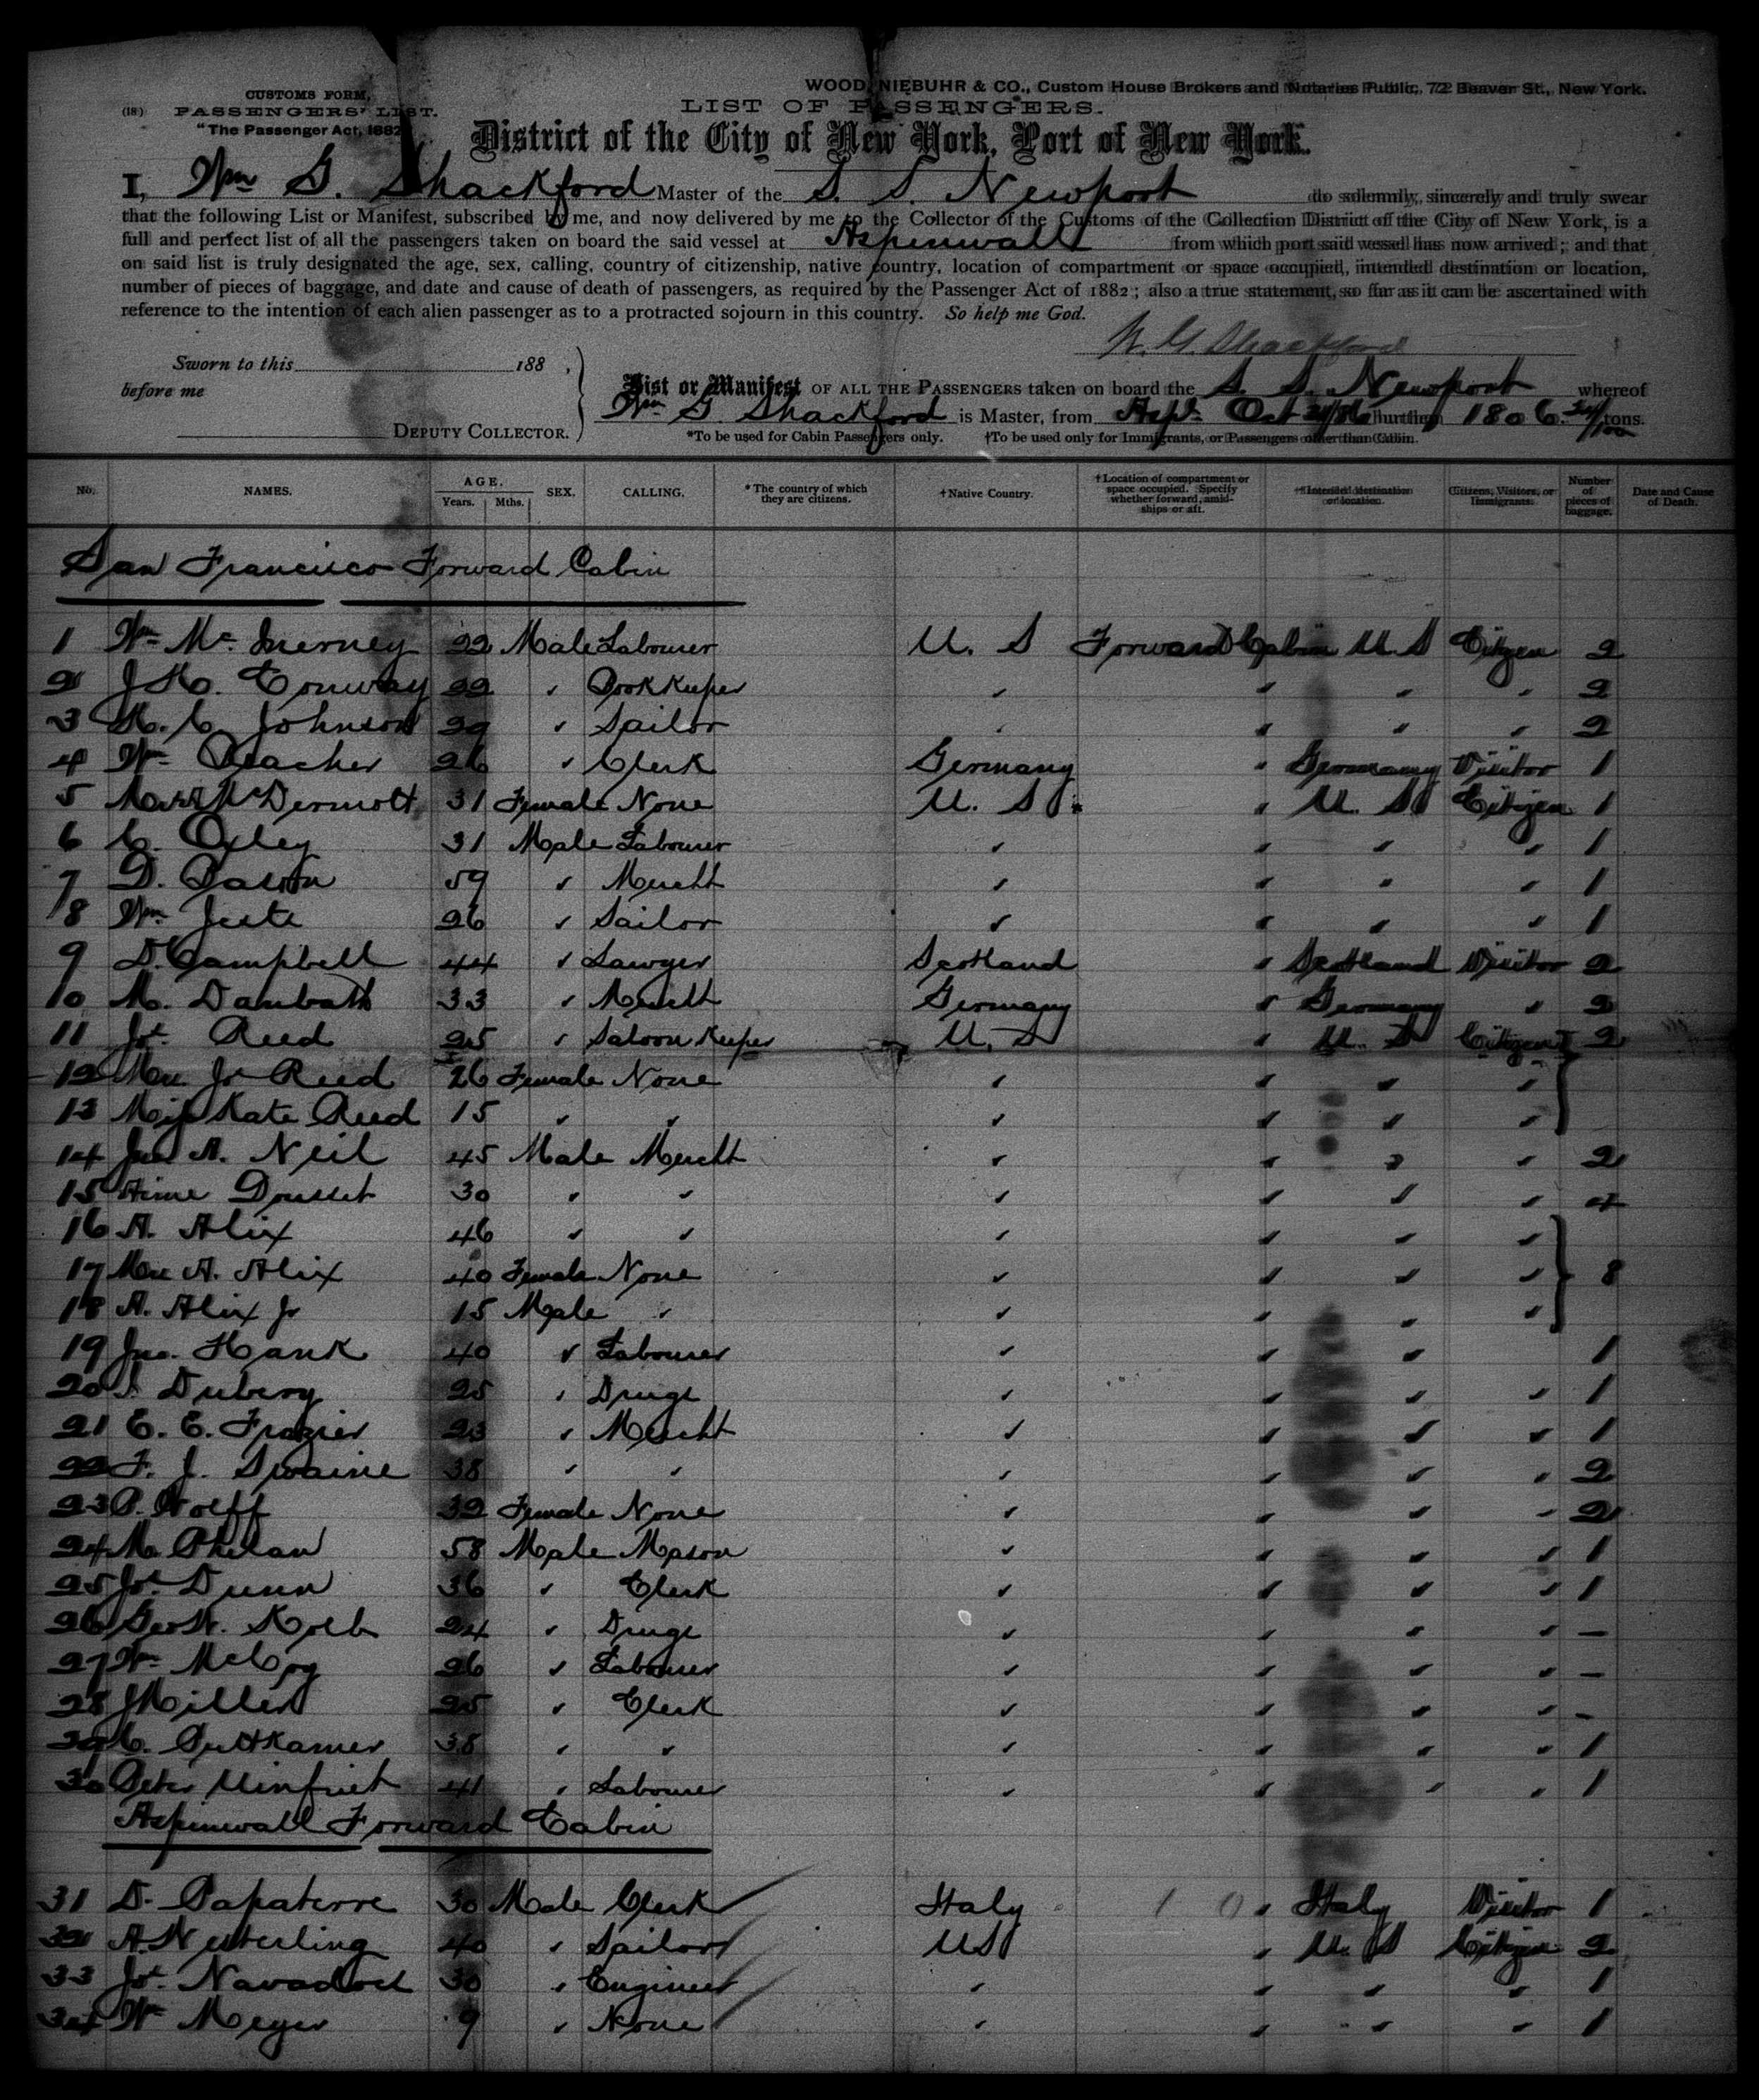 WOOD, NIEBUHR & CO., Custom House Brokers and Notaries Public, 72 Beaver St., New York.
CUSTOMS FORM,
(18) PASSENGERS' LIST.
"The Passenger Act, 1882
LIST OF PASSENGERS.
District of the City of New York, Port of New York.
I, Wm G. Shackford Master of the S. S. Newport do solemnly, sincerely and truly swear
that the following List or Manifest, subscribed by me, and now delivered by me to the Collector of the Customs of the Collection District of the City of New York, is a
full and perfect list of all the passengers taken on board the said vessel at Aspinwall from which port said vessel has now arrived; and that
on said list is truly designated the age, sex, calling, country of citizenship, native country, location of compartment or space occupied, intended destination or location,
number of pieces of baggage, and date and cause of death of passengers, as required by the Passenger Act of 1882; also a true statement, so far as it can be ascertained with
reference to the intention of each alien passenger as to a protracted sojourn in this country. So help me God.
W. G. Shackford
Sworn to this 188 ,
before me
DEPUTY COLLECTOR.
List or Manifest OF ALL THE PASSENGERS taken on board the S. S. Newport whereof
Wm G. Shackford is Master, from Aspl. Oct burthen 1806 tons.
*To be used for Cabin Passengers only. †To be used only for Immigrants, or Passengers other than Cabin.
No. NAMES. AGE. Years. Mths. SEX. CALLING. *The country of which they are citizens. †Native Country. †Location of compartment or space occupied. Specify whether forward, amidships or aft. †Intended destination or location. Citizens, Visitors, or Immigrants. Number of pieces of baggage. Date and Cause of Death.
San Francisco Forward Cabin
1 Wm Mc Inerney 22 Male Labourer U. S Forward Cabin U. S Citizen 2
2 J H. Conway 22 " Bookkeeper " " " " 2
3 H. C Johnson 29 " Sailor " " " " 2
4 Wm 26 " Clerk Germany " Germany Visitor 1
5 McDermott 31 Female None U. S. " U. S Citizen 1
6 C. Oxley 31 Male Labourer " " " " 1
7 D. 59 " Mercht " " " " 1
8 Wm 26 " Sailor " " " " 1
9 D. Campbell 44 " Lawyer Scotland " Scotland Visitor 2
10 M. Dambath 33 " Mercht Germany " Germany " 2
11 Jos. Reed 25 " Saloon Keeper U. S " U. S Citizen 2
12 Mrs Jos Reed 26 Female None " " " "
13 Miss Kate Reed 15 " " " " " "
14 A. Neil 45 Male Mercht " " " " 2
15 Aime Dousset 30 " " " " " " 4
16 A. Alix 46 " " " " " "
17 Mrs A. Alix 40 Female None " " " " 8
18 A. Alix Jr 15 Male " " " " "
19 Jno. Hank 40 " Labourer " " " 1
20 Dubery 25 " Drugt " " " " 1
21 E. E. Frazier 23 " Mercht " " " " 1
22 F. J. Swaine 38 " " " " " " 2
23 Wolff 32 Female None " " " " 2
24 M. Phelan 58 Male Mason " " " " 1
25 Jos. Dunn 36 " Clerk " " " " 1
26 Geo W. Kolb 24 " Drugt " " " " —
27 Wm McCoy 26 " Labourer " " " " —
28 J Miller 25 " Clerk " " " " —
29 C. Puttkamer 38 " " " " " " 1
30 Peter 41 " Labourer " " " " 1
Aspinwall Forward Cabin
31 D. Papaterre 30 Male Clerk Italy 1 0 " Italy Visitor 1
32 A. Nesterling 40 " Sailor U S " U. S Citizen 2
33 Jos. 30 " Engineer " " " " 1
34 Wm Meyer 9 " None " " " " 1